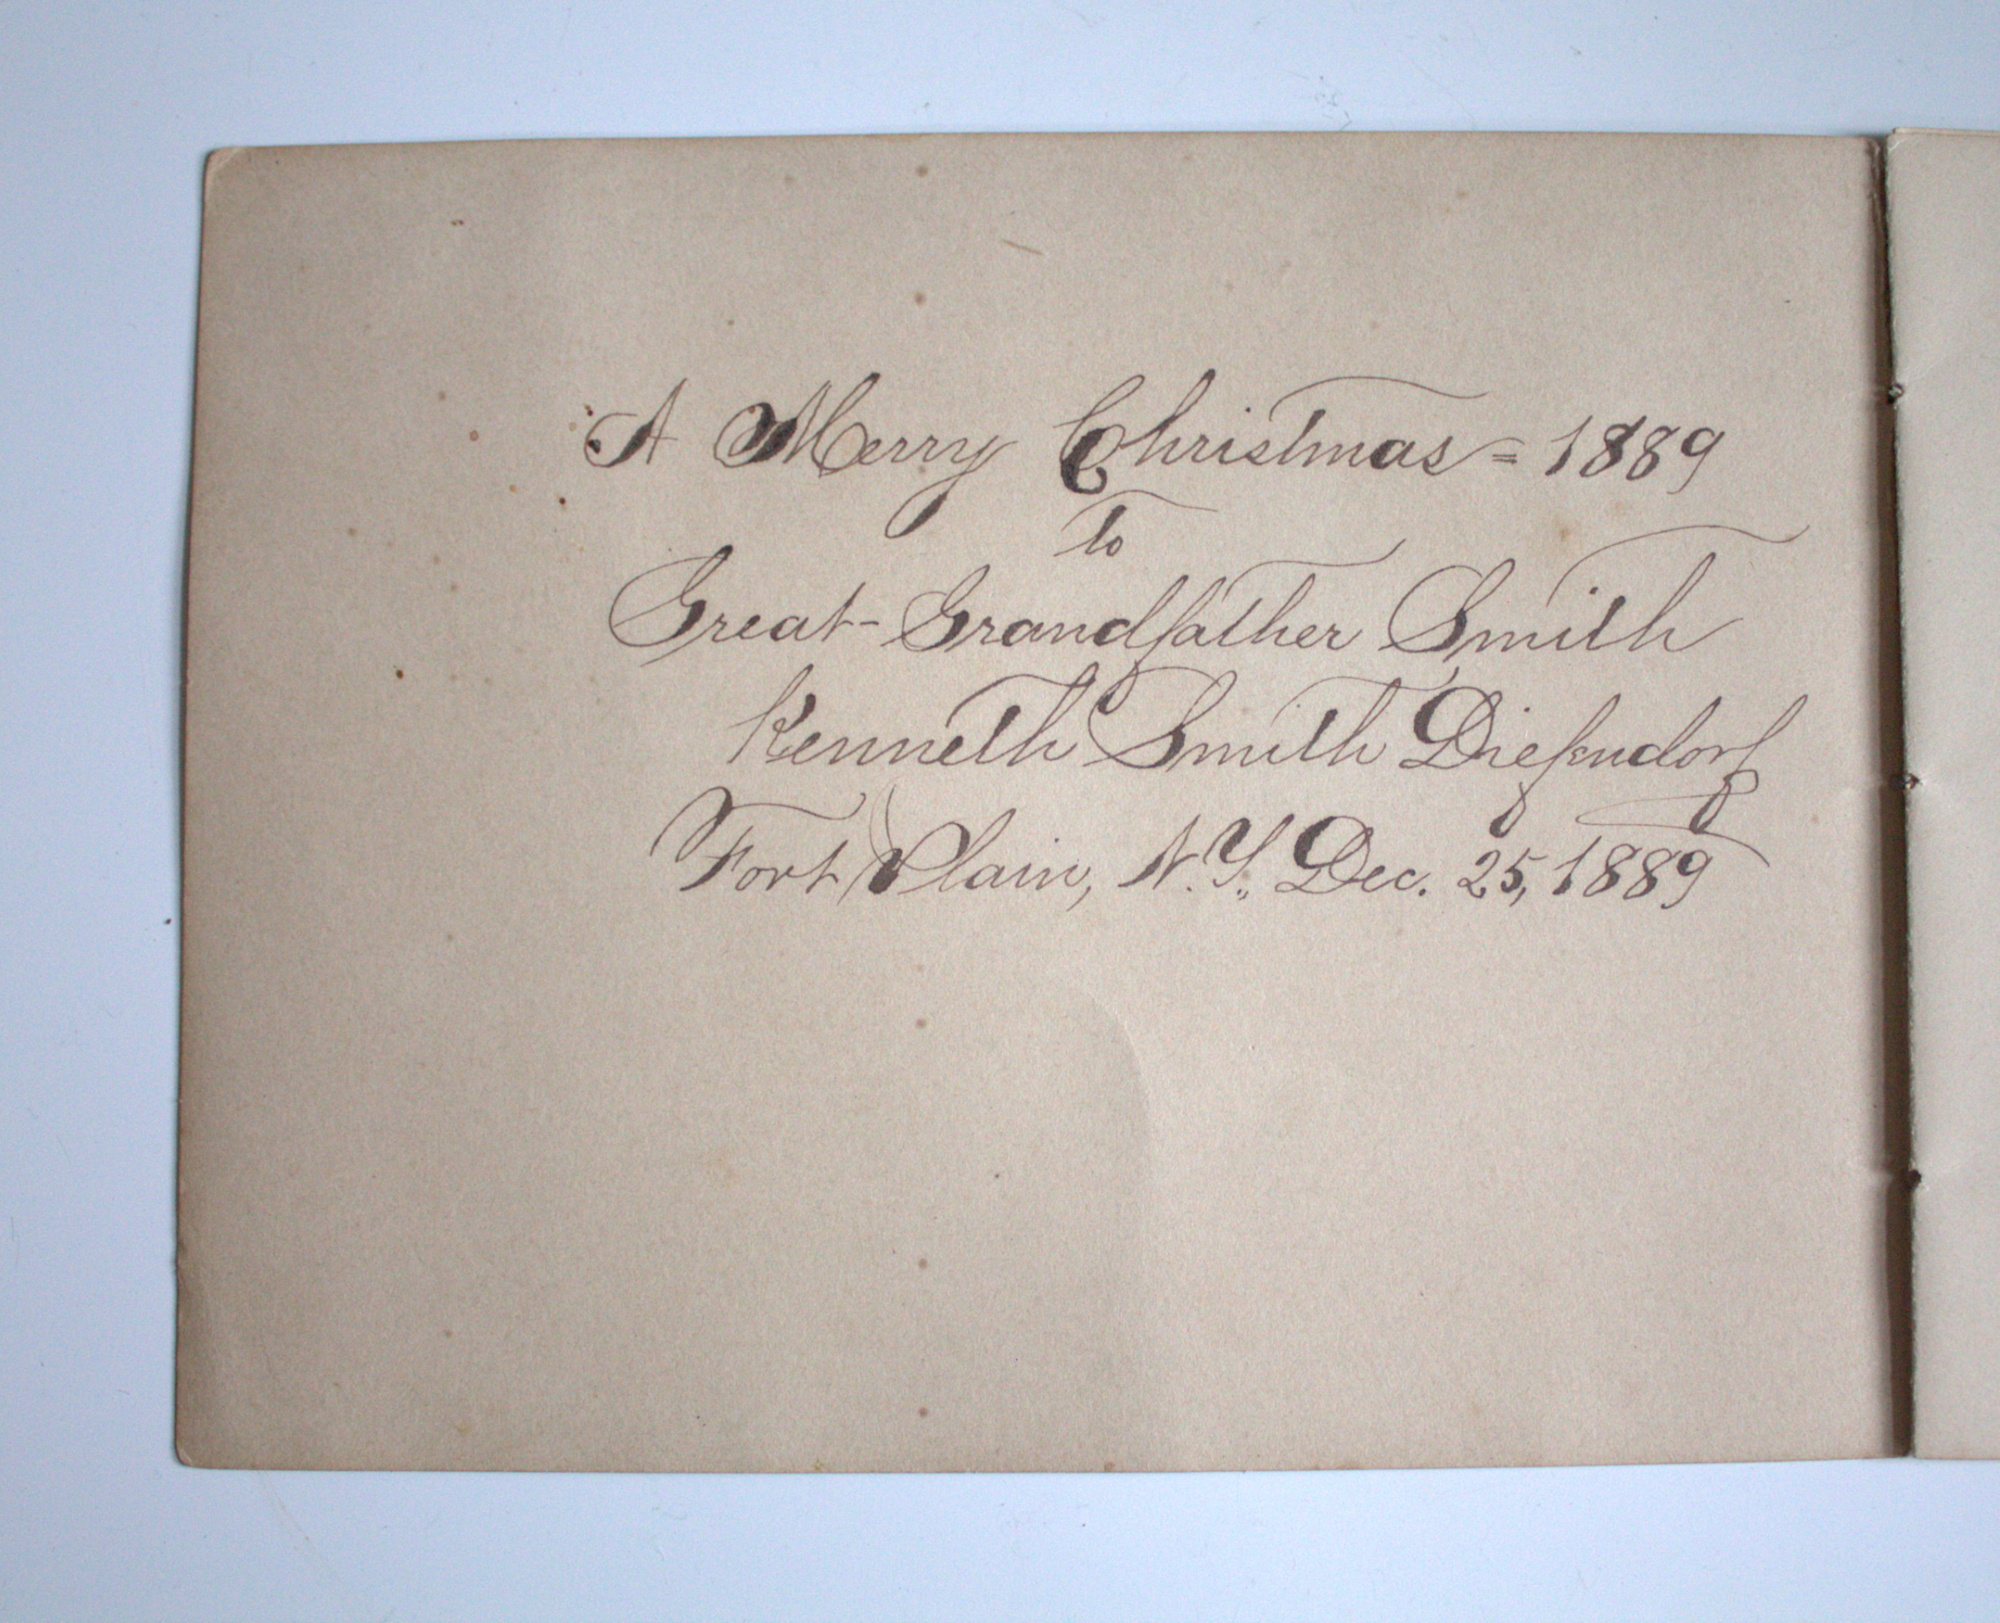 A Merry Christmas = 1889
to
Great-Grandfather Smith
Kenneth Smith Diefendorf
Fort Plain, N.Y., Dec. 25, 1889